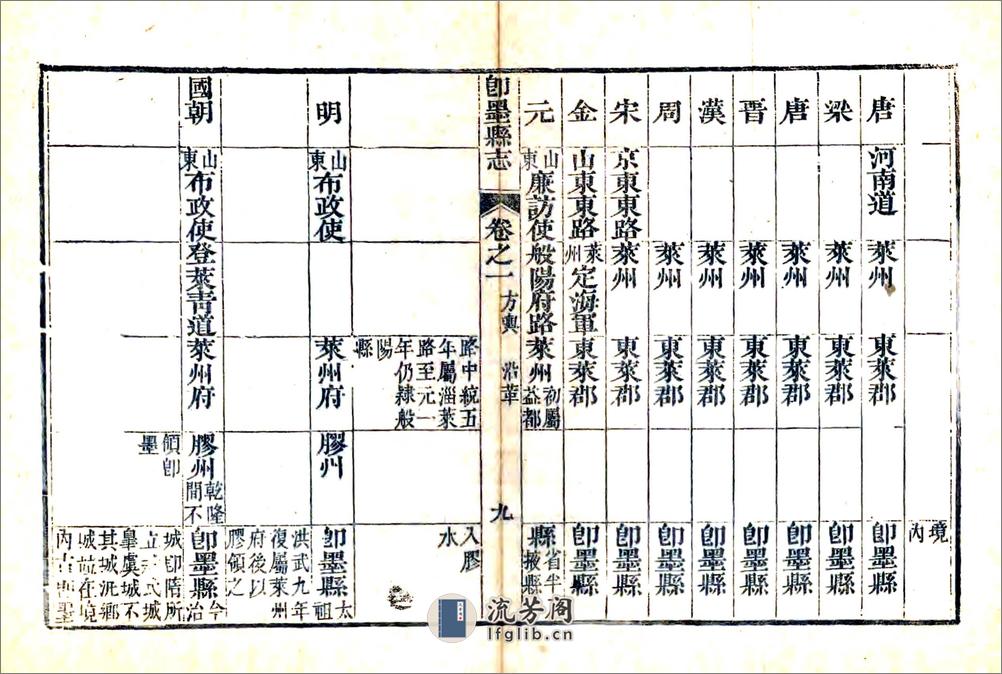 境
內
唐 河南道 萊州 東萊郡 卽墨縣
梁 萊州 東萊郡 卽墨縣
唐 萊州 東萊郡 卽墨縣
晋 萊州 東萊郡 卽墨縣
漢 萊州 東萊郡 卽墨縣
周 萊州 東萊郡 卽墨縣
宋 京東東路 萊州 東萊郡 卽墨縣
金 山東東路 萊州 定海軍 東萊郡 卽墨縣
元 山東 廉訪使 般陽府路 萊州 初屬益都 縣 省半掖縣
卽墨縣志 卷之一 方輿 沿革 九
路中統五 入膠
年屬淄萊 水
路至元一
年仍隸般
陽
縣
明 山東 布政使 萊州府 膠州 卽墨縣 太祖
洪武九年
復屬萊州
府後以
膠領之
國朝 山東 布政使 登萊靑道 萊州府 膠州 乾隆間不 卽墨縣 今治
領卽 城卽隋所
墨 立 城
臯虞城不
其城 鄉
城 在境
內古 墨
流芳阁
lfglib.cn